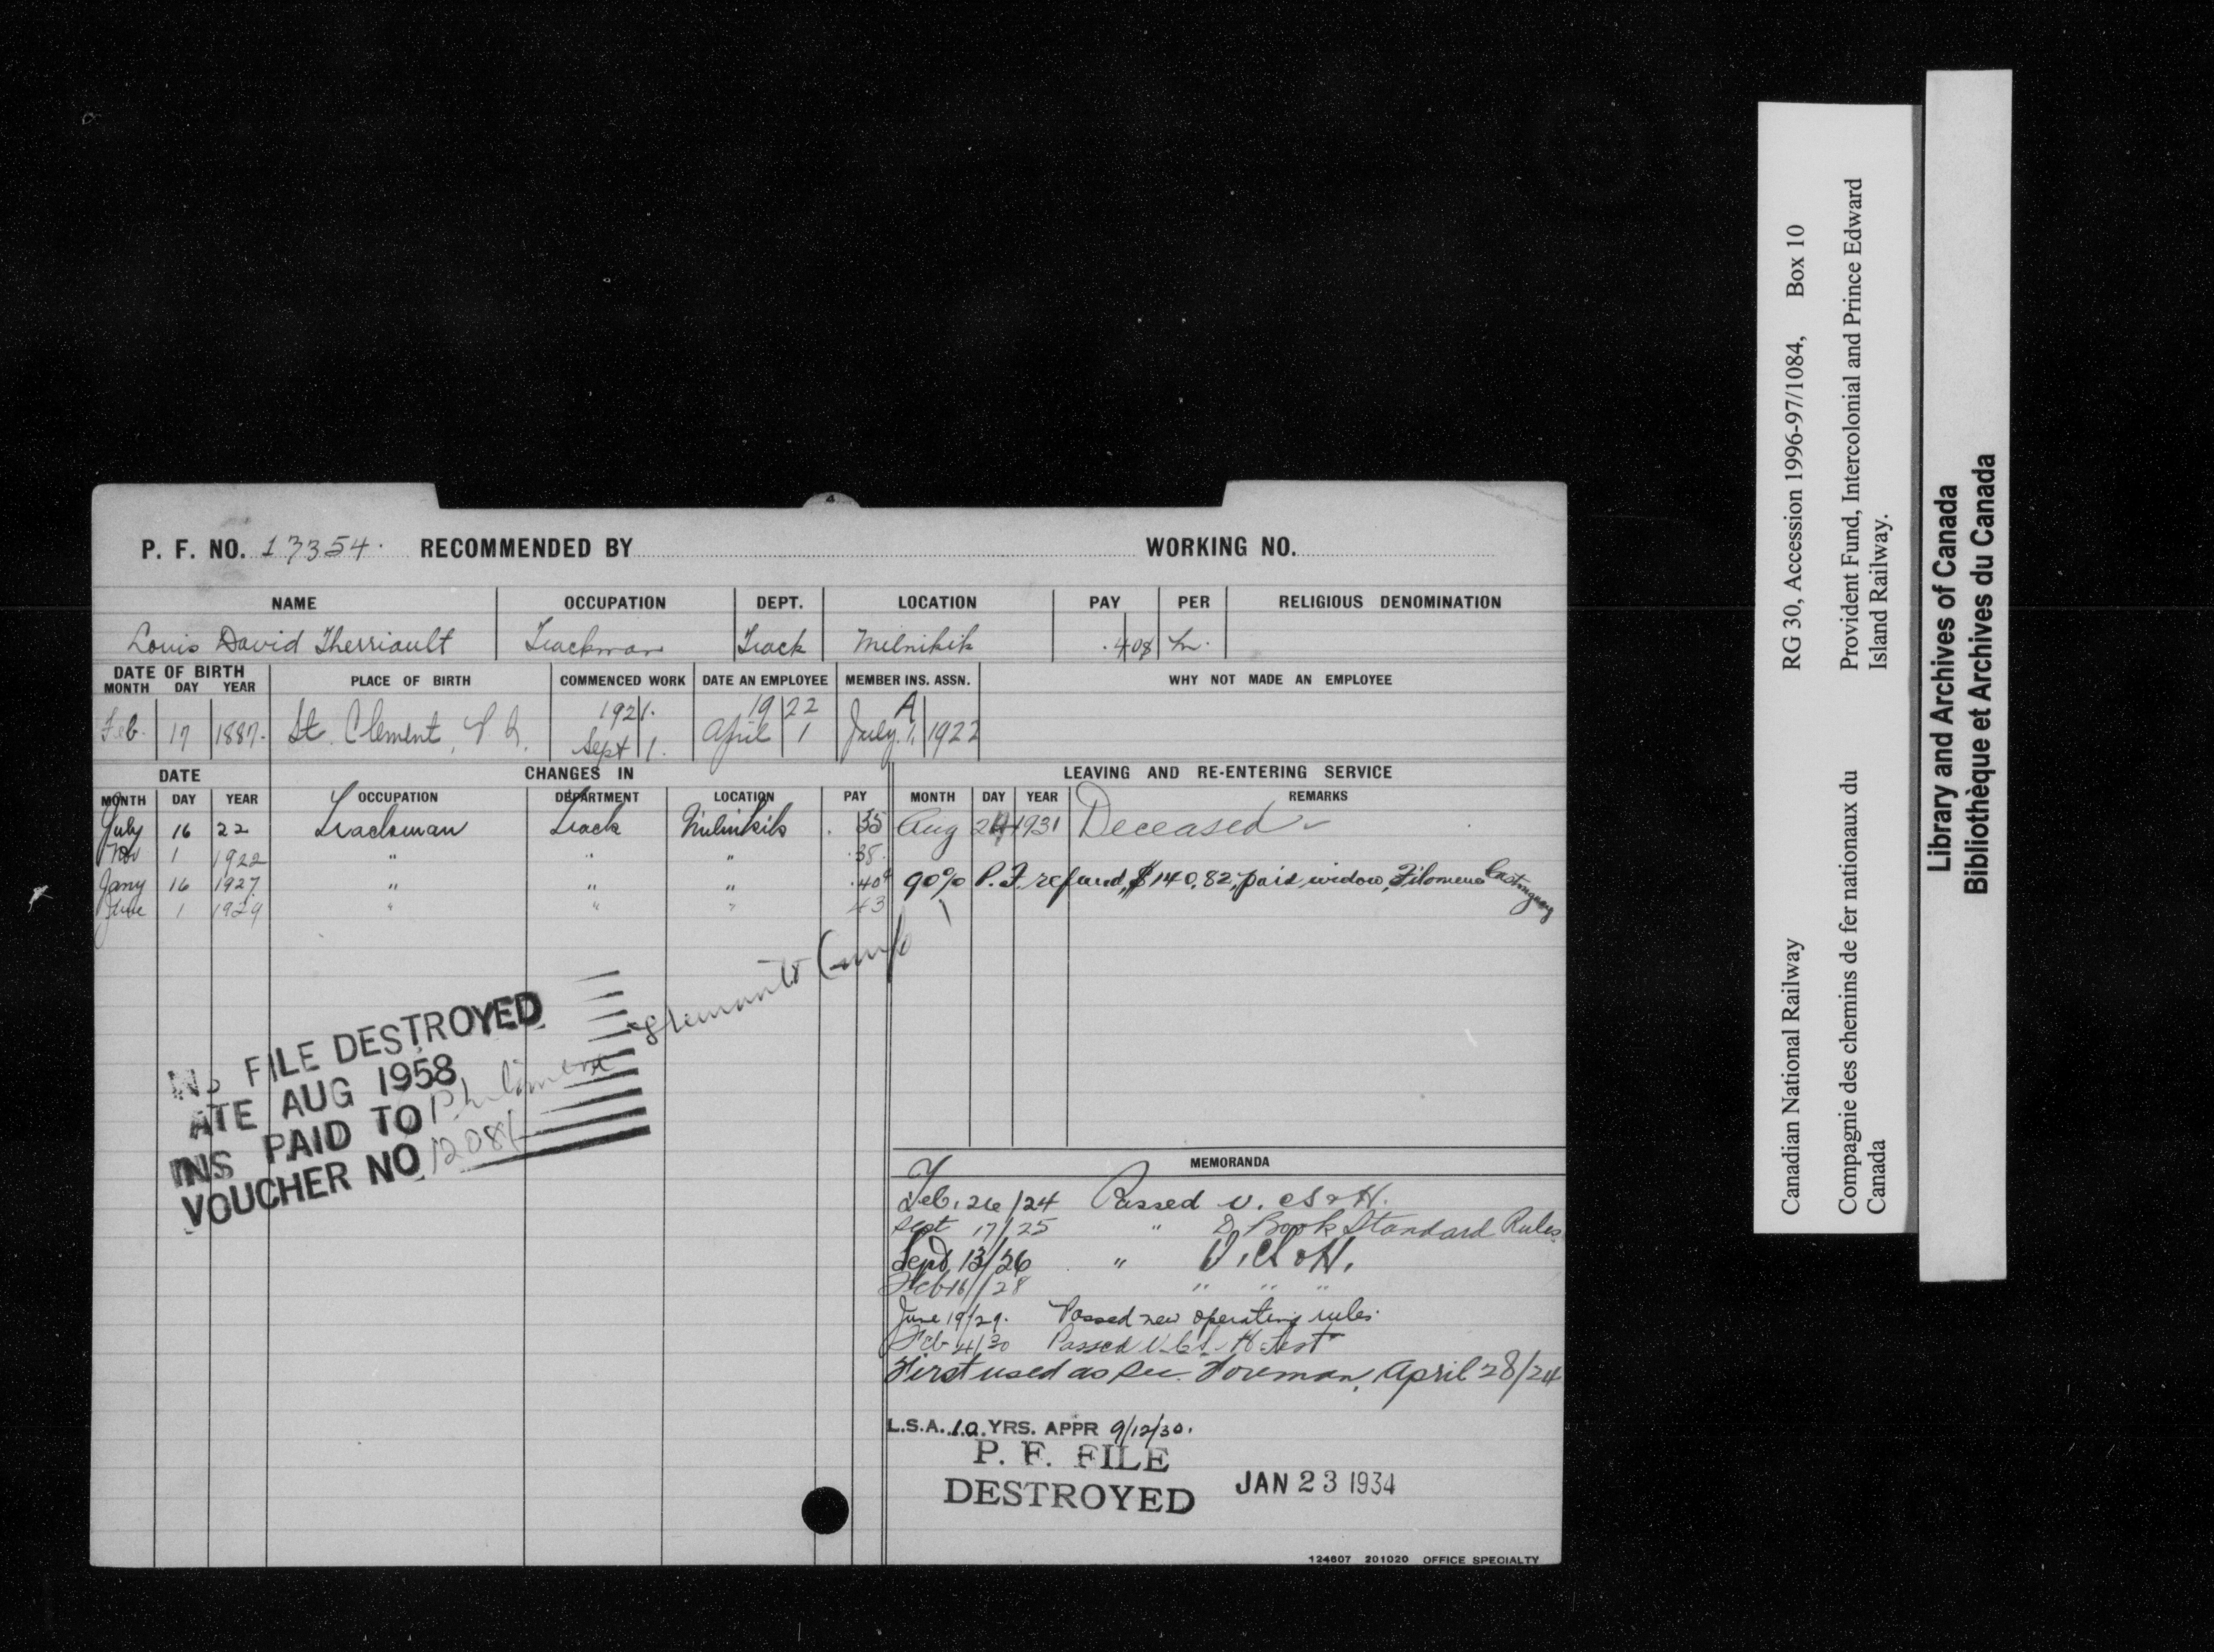 P. F. NO. 17354. RECOMMENDED BY WORKING NO.
NAME OCCUPATION DEPT. LOCATION PAY PER RELIGIOUS DENOMINATION
Louis David Therriault Trackman Track Milnikik .408 hr.
DATE OF BIRTH
MONTH DAY YEAR PLACE OF BIRTH COMMENCED WORK DATE AN EMPLOYEE MEMBER INS. ASSN. WHY NOT MADE AN EMPLOYEE
1921. 19 22 A
Feb. 17 1887. St. Clement, P.Q. Sept 1. April 1 July 1, 1922
DATE CHANGES IN LEAVING AND RE-ENTERING SERVICE
MONTH DAY YEAR OCCUPATION DEPARTMENT LOCATION PAY MONTH DAY YEAR REMARKS
July 16 22 Trackman Track Milnikik . 35 Aug 24 1931 Deceased
Nov 1 1922 " " " .38.
Jany 16 1927 " " " .40⁸ 90% P.F. refund, $140.82, paid widow, Filomene Castonguay
June 1 1929 " " " 43
FILE DESTROYED
ATE AUG 1958
INS PAID TO Philomene
VOUCHER NO 12081
MEMORANDA
Feb. 26/24 Passed V. CS & H.
Sept 17/25 " D Book Standard Rules
Sept 13/26 " V. CS & H.
Feb 16/28 " " "
June 19/29. Passed new operating rules.
Feb 4/30 Passed V. C.S. H. Test
First used as Sec. Foreman, April 28/24
L.S.A. 10 YRS. APPR 9/12/30.
P. F. FILE
DESTROYED JAN 23 1934
124607 201020 OFFICE SPECIALTY
Canadian National Railway RG 30, Accession 1996-97/1084, Box 10
Compagnie des chemins de fer nationaux du Provident Fund, Intercolonial and Prince Edward
Canada Island Railway.
Library and Archives of Canada
Bibliothèque et Archives du Canada